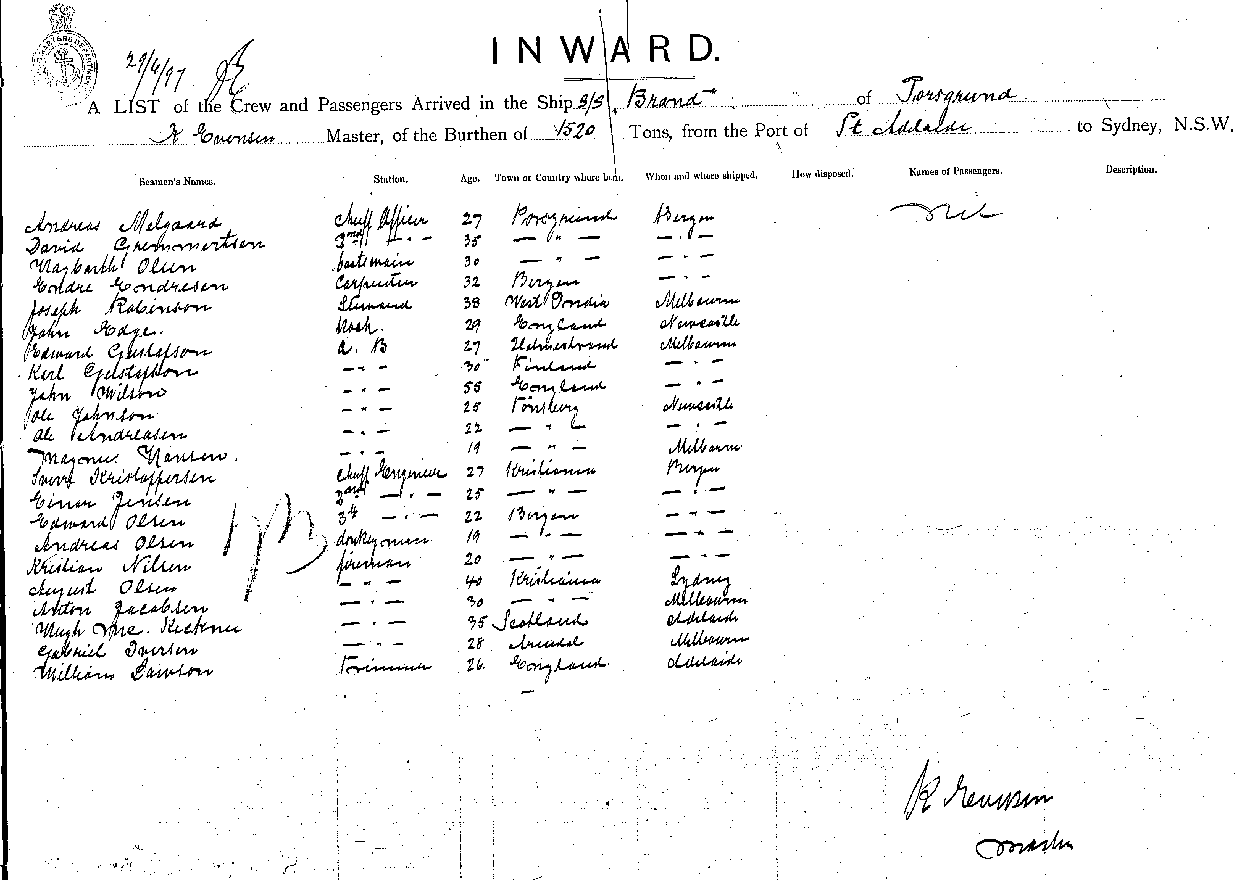 INWARD.
29/4/97
A LIST of the Crew and Passengers Arrived in the Ship S/S Brand of Porsgrund
K Evensen Master, of the Burthen of 1520 Tons, from the Port of Pt Adelaide to Sydney, N.S.W.
Seamen's Names. Station. Age. Town or Country where born. When and where shipped. How disposed. Names of Passengers. Description.
Andreas Melgaard Chieff Officer 27 Porsgrund Bergen Nil
David 2nd — " — 35 — " — — " —
Olsen boatsmain 30 — " — — " —
Endre Endresen Carpenter 32 Bergen — " —
Joseph Robinson Steward 38 West India Melbourn
John Hodge. Kock. 29 England Newcastle
Edward Gustafson A. B 27 Melbourn
Karl Gustafson — " — 30 Finland — " —
John Wilson — " — 55 England — " —
Ole Johnson — " — 25 Tönsberg Newcastle
Ole Andreasen — " — 22 — " — — " —
Magnus Hansen. — " — 19 — " — Melbourn
Kristoffersen Chieff Engenier 27 Kristiania Bergen
Einar Jensen 2nd — " — 25 — " — — " —
Edward Olsen 3d — " — 22 Bergen — " —
Andreas Olsen donkeyman 19 — " — — " —
Kristian Nilsen fireman 20 — " — — " —
August Olsen — " — 40 Kristiania Sydney
Anton Jacobsen — " — 30 — " — Melbourn
Hugh Mc. — " — 35 Scotland Adelaide
Gabriel Iversen — " — 28 Arendal Melbourn
William Lawson Trimmer 26 England Adelaide
K Evensen
Master